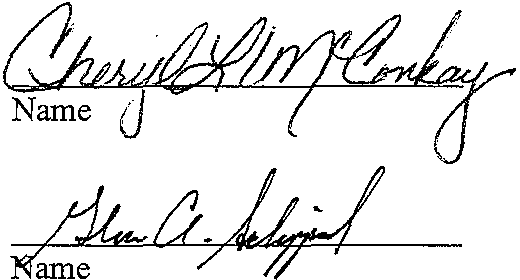 Cheryl L McConkay
Name
Glen A.
Name